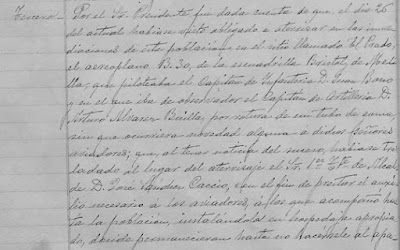 Tercero.- Por el Sr. Presidente fue dada cuenta de que, el dia 26
del actual habiase visto obligado a aterrizar en las inme
diaciones de esta poblacion, en el sitio llamado El Prado,
el aeroplano B. 30, de la escuadrilla Bristol, de
que pilotaba el Capitán de Infanteria D. Juan Bono
y en el que iba de observador el Capitan de Artilleria D.
Arturo Alvarez Builla, por rotura de un tubo de
sin que ocurriera novedad alguna a dichos señores
aviadores; que, al tener noticia del suceso, habiase tras
ladado al lugar del aterrizaje el Sr. 1er Tte. de Alcal
de D. José Sanchez con el fin de prestar el auxi
lio necesario a los aviadores, a los que acompañó has
ta la poblacion, instalandolos en hospedaje apropia
do, donde permanecieron hasta